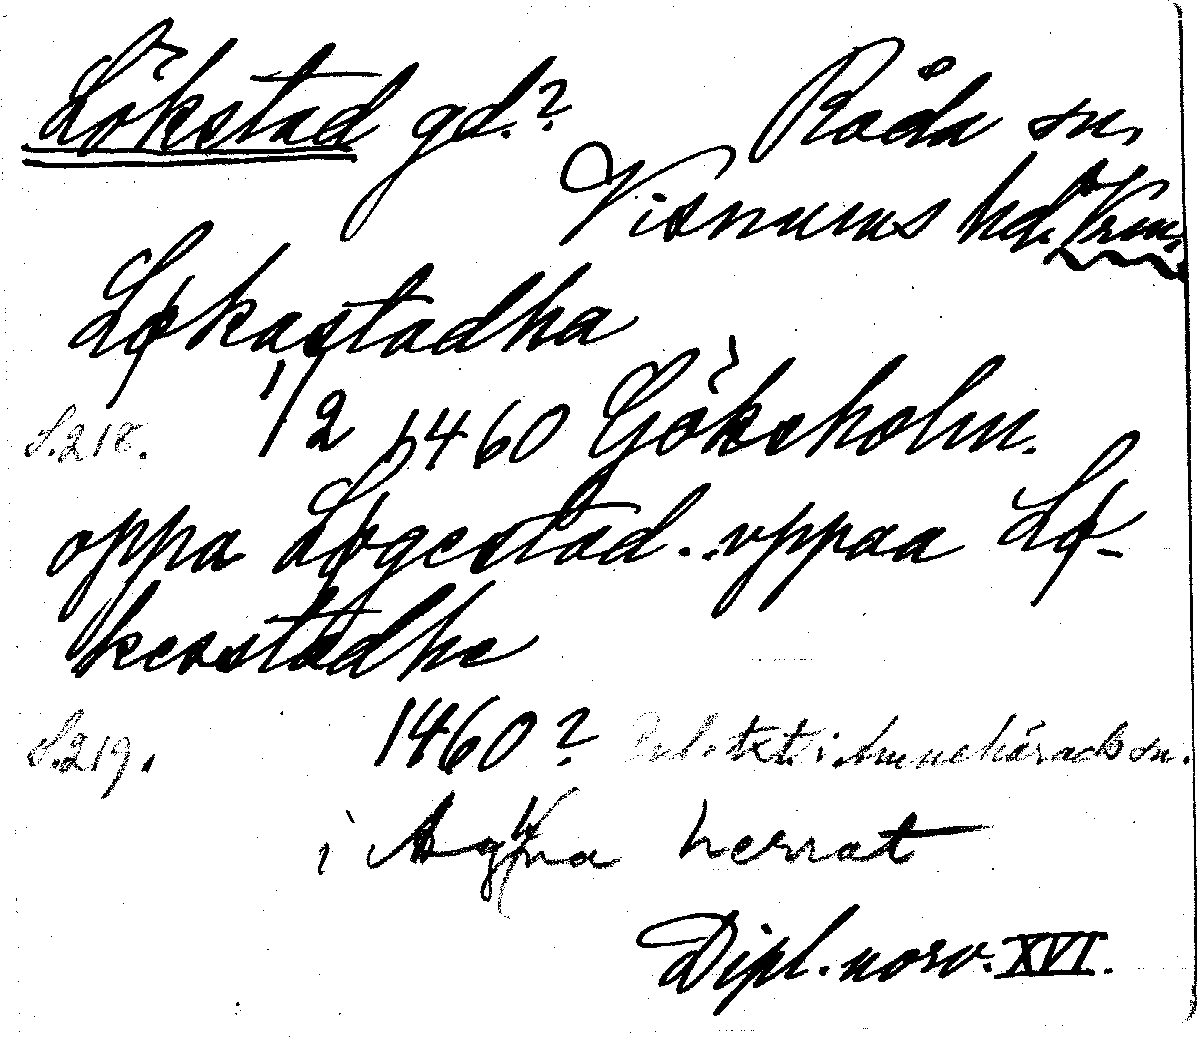 Lökstad gd.? Råda sn,
Visnums hd. Vrm.
Løkastadha
S. 218. 1/2 1460 Göksholm.
oppa Løgestad . . vppaa Lø-
kerstadhe
S. 219. 1460? i Amnehärads sn.
i herrat
Dipl. norv. XVI.